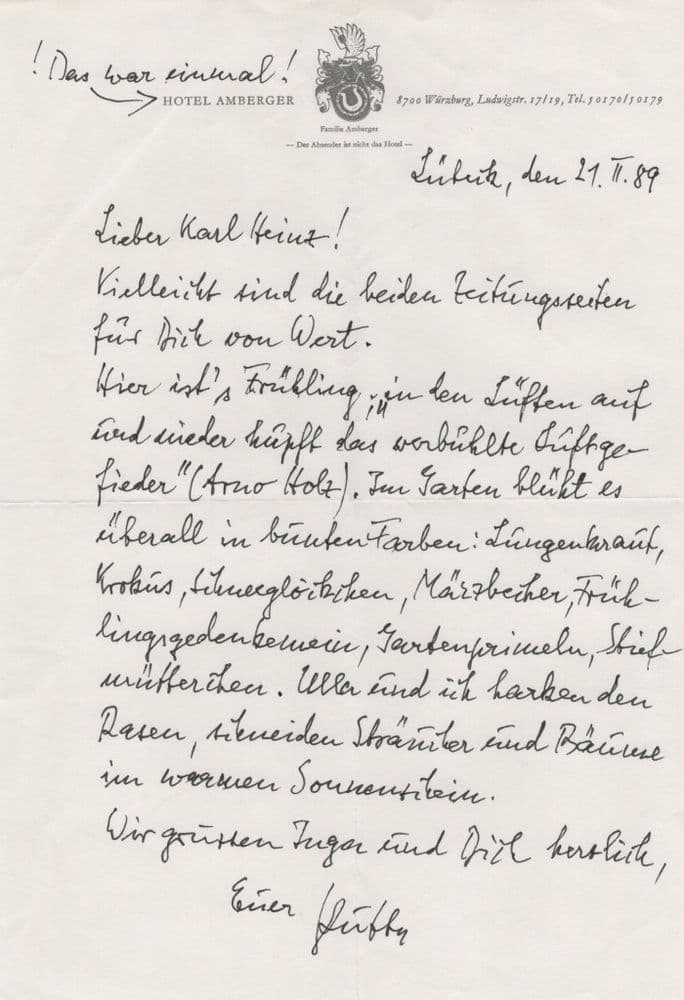 ! Das war einmal!
HOTEL AMBERGER
8700 Würzburg, Ludwigstr. 17/19, Tel. 50170/50179
Familie Amberger
— Der Absender ist nicht das Hotel —
Lübeck, den 21. II. 89
Lieber Karl Heinz!
Vielleicht sind die beiden Zeitungsseiten
für Dich von Wert.
Hier ist's Frühling; „in den Lüften auf
und nieder hüpft das Luftge-
fieder" (Arno Holz). Im Garten blüht es
überall in bunten Farben: Lungenkraut,
Krokus, Schneeglöckchen, Märzbecher, Früh-
lingsgedenkemein, Gartenprimeln, Stief-
mütterchen. Ulla und ich harken den
Rasen, schneiden Sträucher und Bäume
im warmen Sonnenschein.
Wir grüssen Inga und Dich herzlich,
Euer